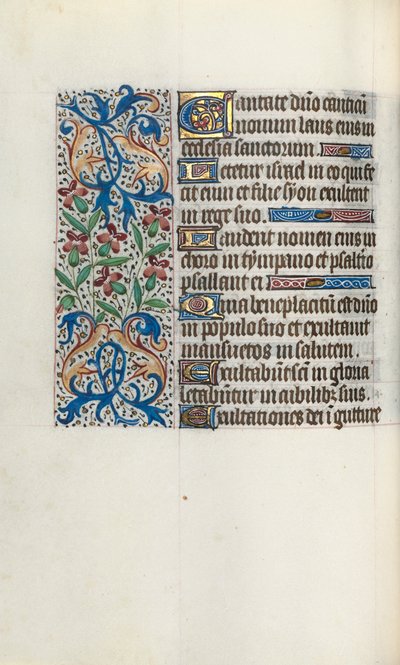 Cantate dño canticũ
nouum laus eius in
ecclesia sanctorum.
Letetur israel in eo qui fe
cit eum et filie syon exultent
in rege suo.
Laudent nomen eius in
choro in tympano et psalterio
psallant ei
Quia beneplacitũ est dño
in populo suo et exaltauit
mansuetos in salutem.
Exultabũt sc̃i in gloria
letabuntur in cubilibꝫ suis.
Exultationes dei ĩ gutture